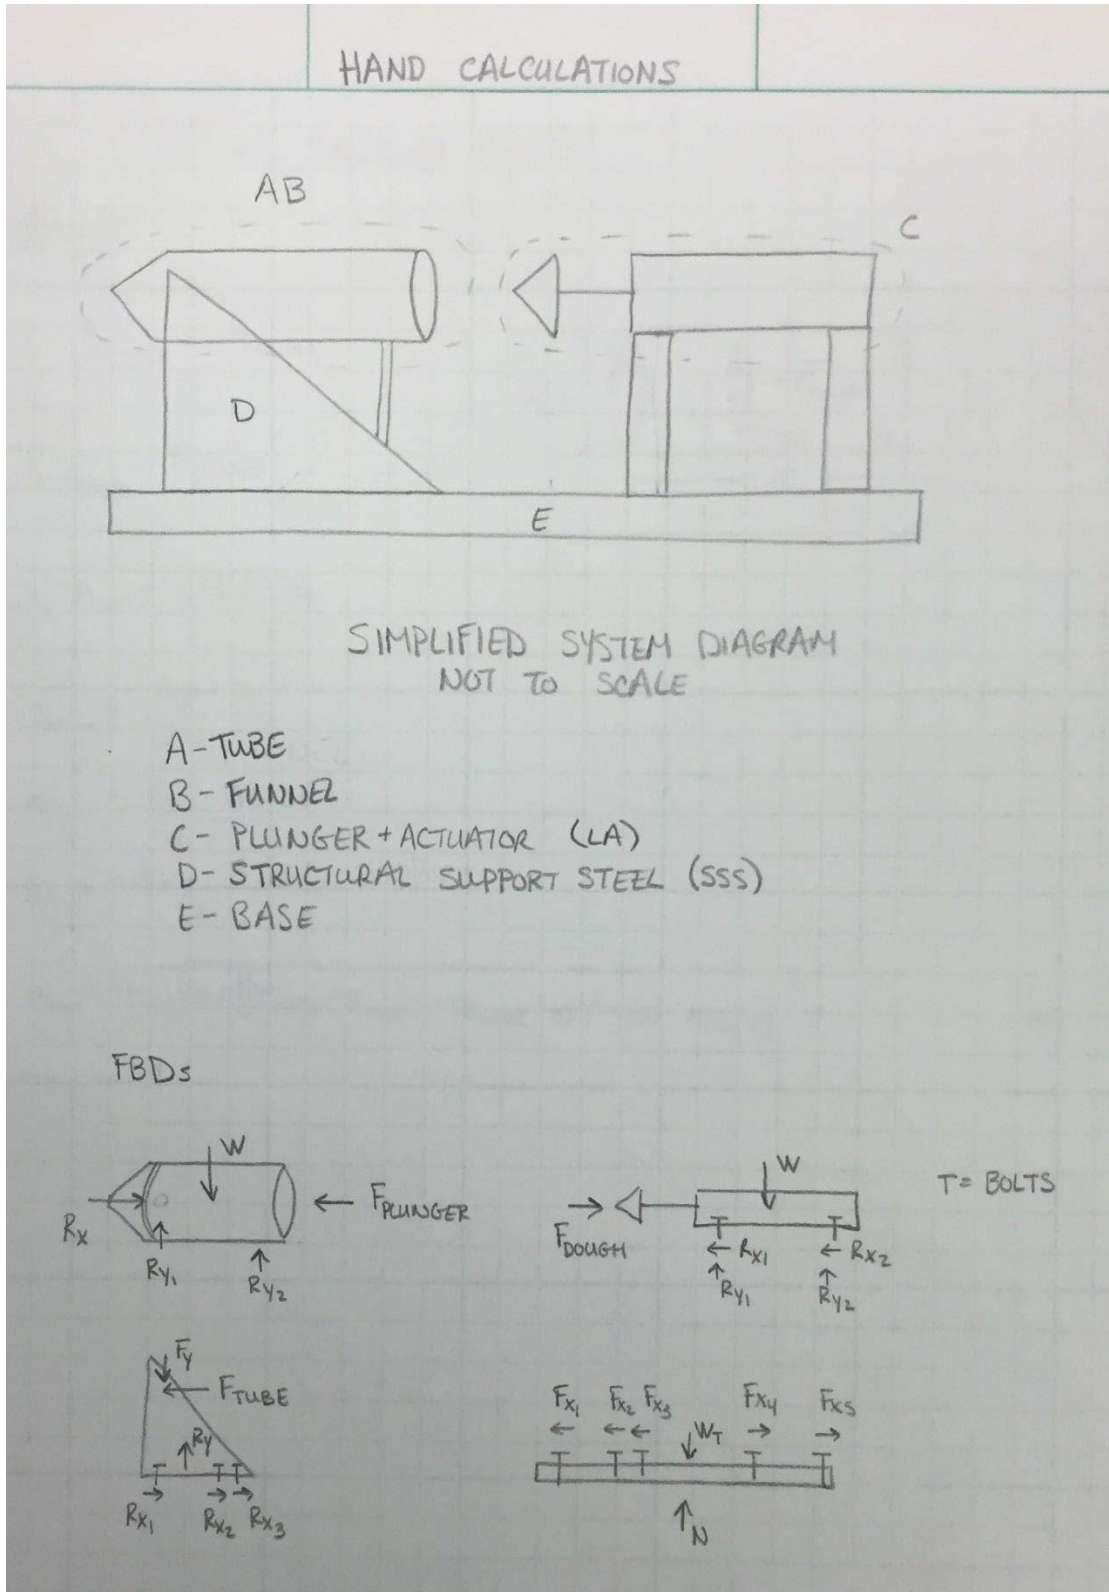 HAND CALCULATIONS
AB
C
D
E
SIMPLIFIED SYSTEM DIAGRAM
NOT TO SCALE
A - TUBE
B - FUNNEL
C - PLUNGER + ACTUATOR (LA)
D - STRUCTURAL SUPPORT STEEL (SSS)
E - BASE
FBDs
W
F PLUNGER
Rx
Ry1
Ry2
W
T = BOLTS
F DOUGH
Rx1
Rx2
Ry1
Ry2
Fy
F TUBE
Ry
Rx1
Rx2
Rx3
Fx1
Fx2
Fx3
Fx4
Fx5
WT
N